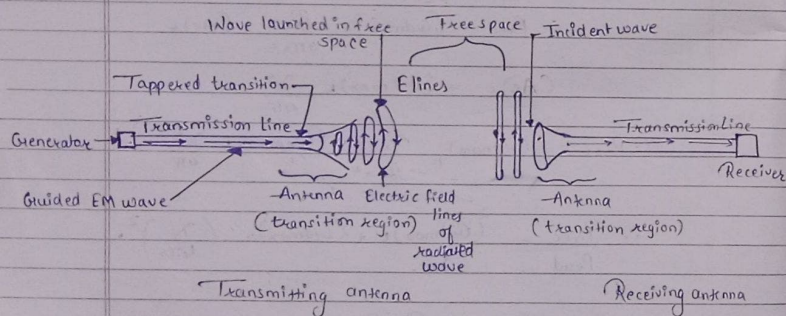 Wave launched in free space
Free space
Incident wave
Tappered transition
E lines
Generator
Transmission line
Transmission Line
Receiver
Guided EM wave
Antenna
(transition region)
Electric field
lines
of
radiated
wave
Antenna
(transition region)
Transmitting antenna
Receiving antenna